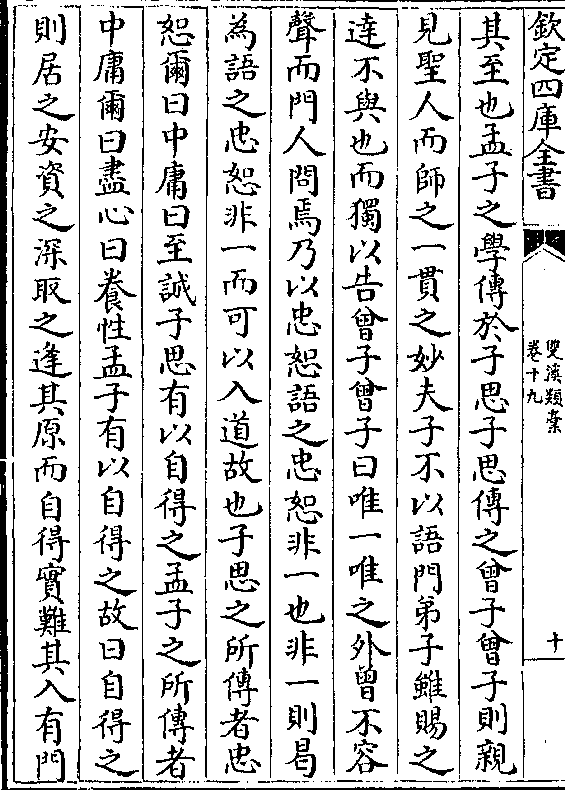 欽定四庫全書
雙溪類槀
卷十九
十
其至也孟子之學傳於子思子思傳之曾子曾子則親
見聖人而師之一貫之妙夫子不以語門弟子雖賜之
達不與也而獨以告曾子曾子曰唯一唯之外曾不容
聲而門人問焉乃以忠恕語之忠恕非一也非一則曷
為語之忠恕非一而可以入道故也子思之所傳者忠
恕爾曰中庸曰至誠子思有以自得之孟子之所傳者
中庸爾曰盡心曰養性孟子有以自得之故曰自得之
則居之安資之深取之逢其原而自得實難其入有門